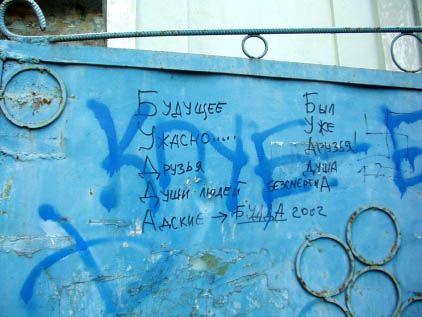 Будущее
Ужасно.....
Друзья
Души людей
Адские → БУДДА 2002
Был
Уже
Друзья!
Душа
безсмертнА